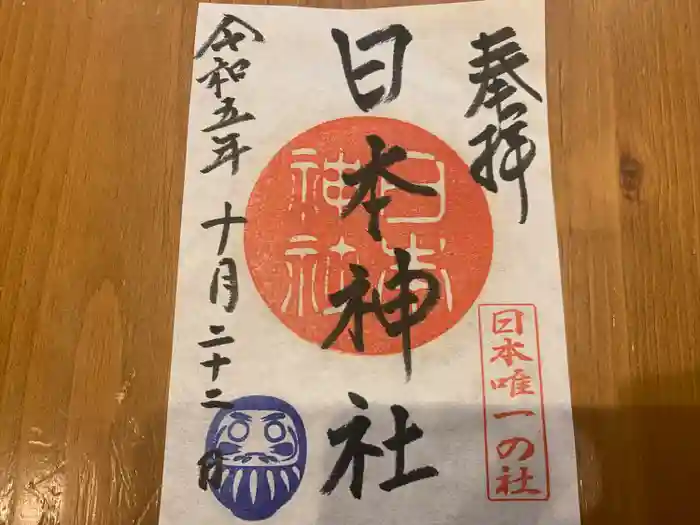 奉拝
日本唯一の社
日本神社
日本神社
令和五年十月二十二日